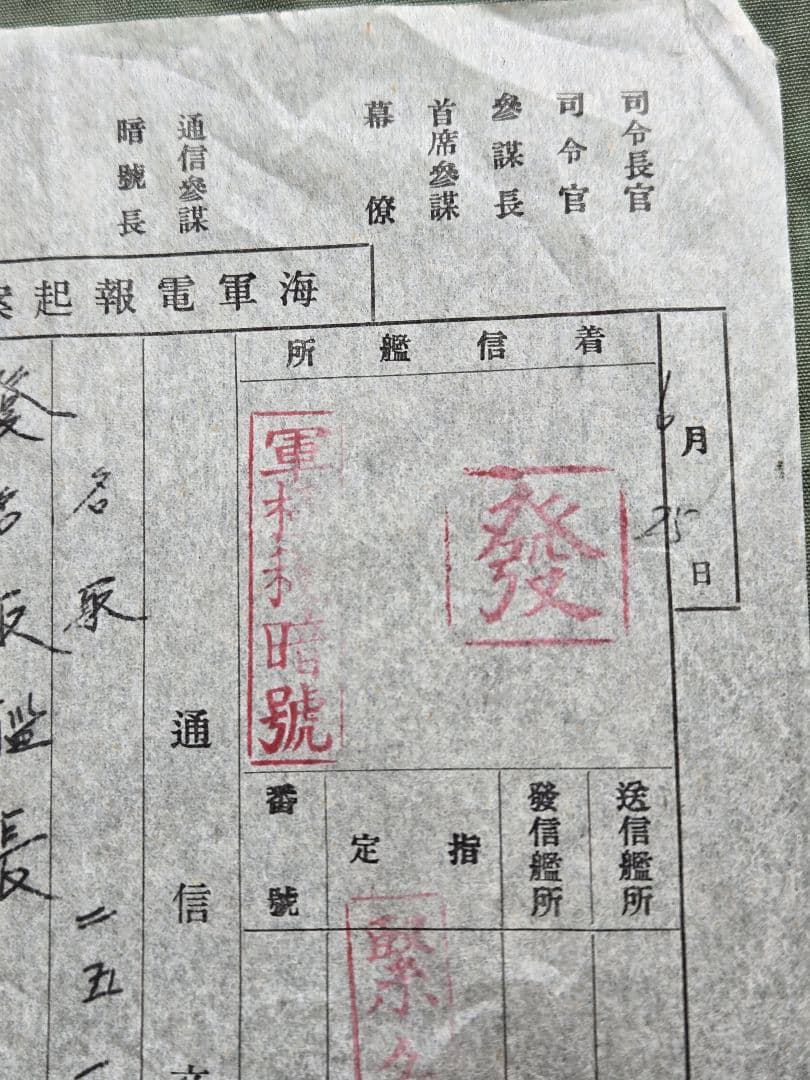 司令長官
司令官
參謀長
首席參謀
幕僚
通信參謀
暗號長
海軍電報起案
6月25日
着信艦所
發
軍機 暗號
送信艦所
發信艦所
指定
緊
番號
通信文
名取
二五一
發 名取艦長